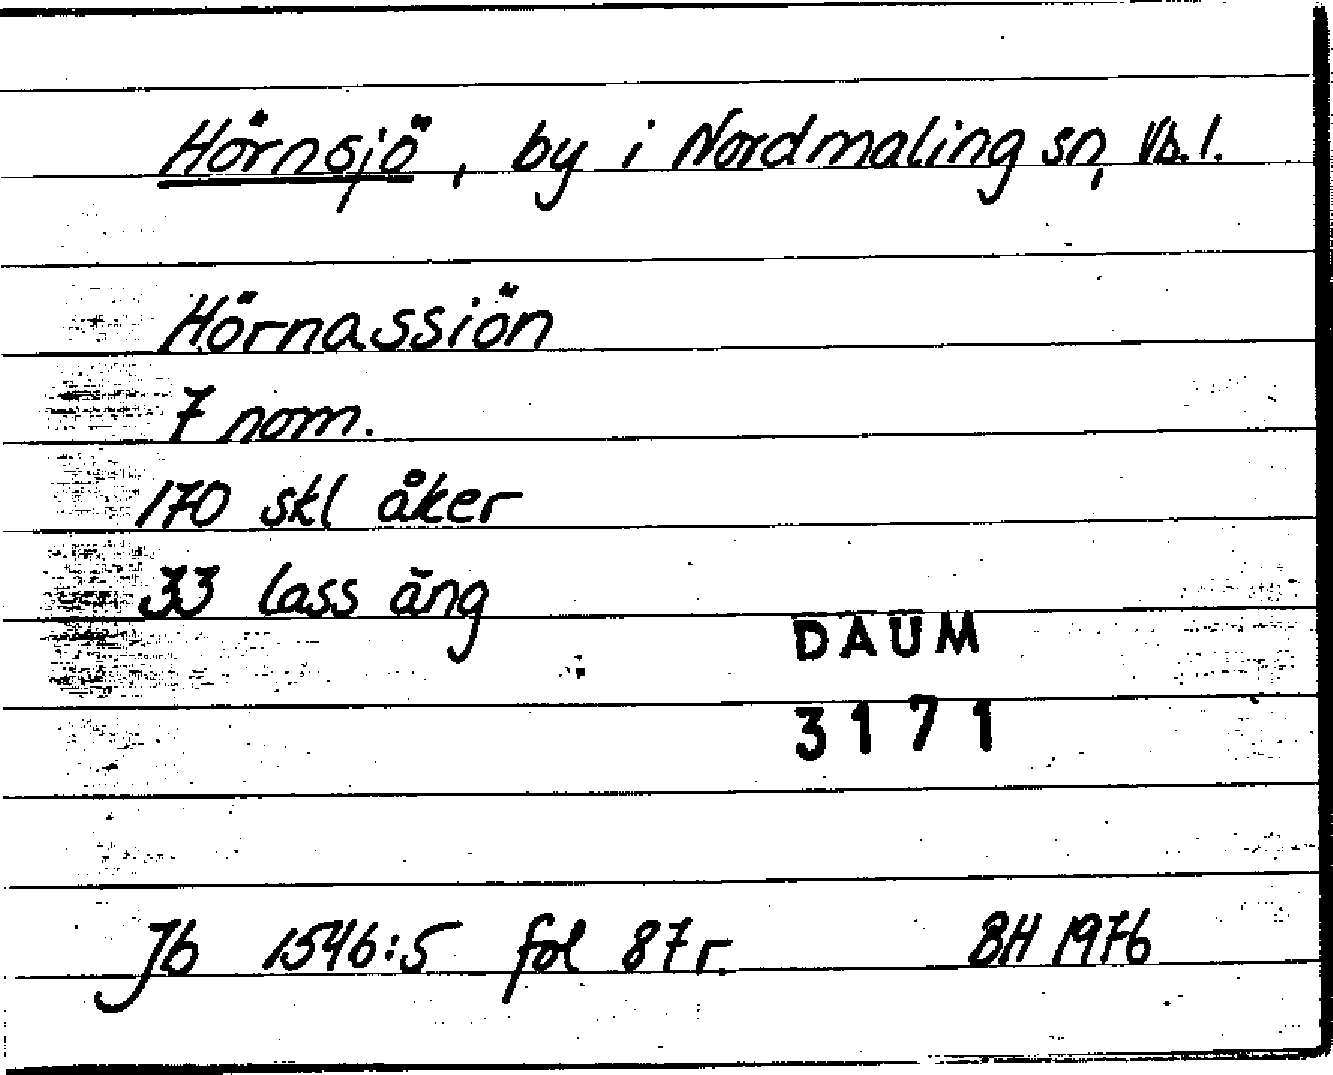 Hörnsjö, by i Nordmaling sn, Vb.l.
Hörnassiön
7 nom.
170 skl åker
33 lass äng
DAUM
3171
Jb 1546:5 fol 87r. BH 1976